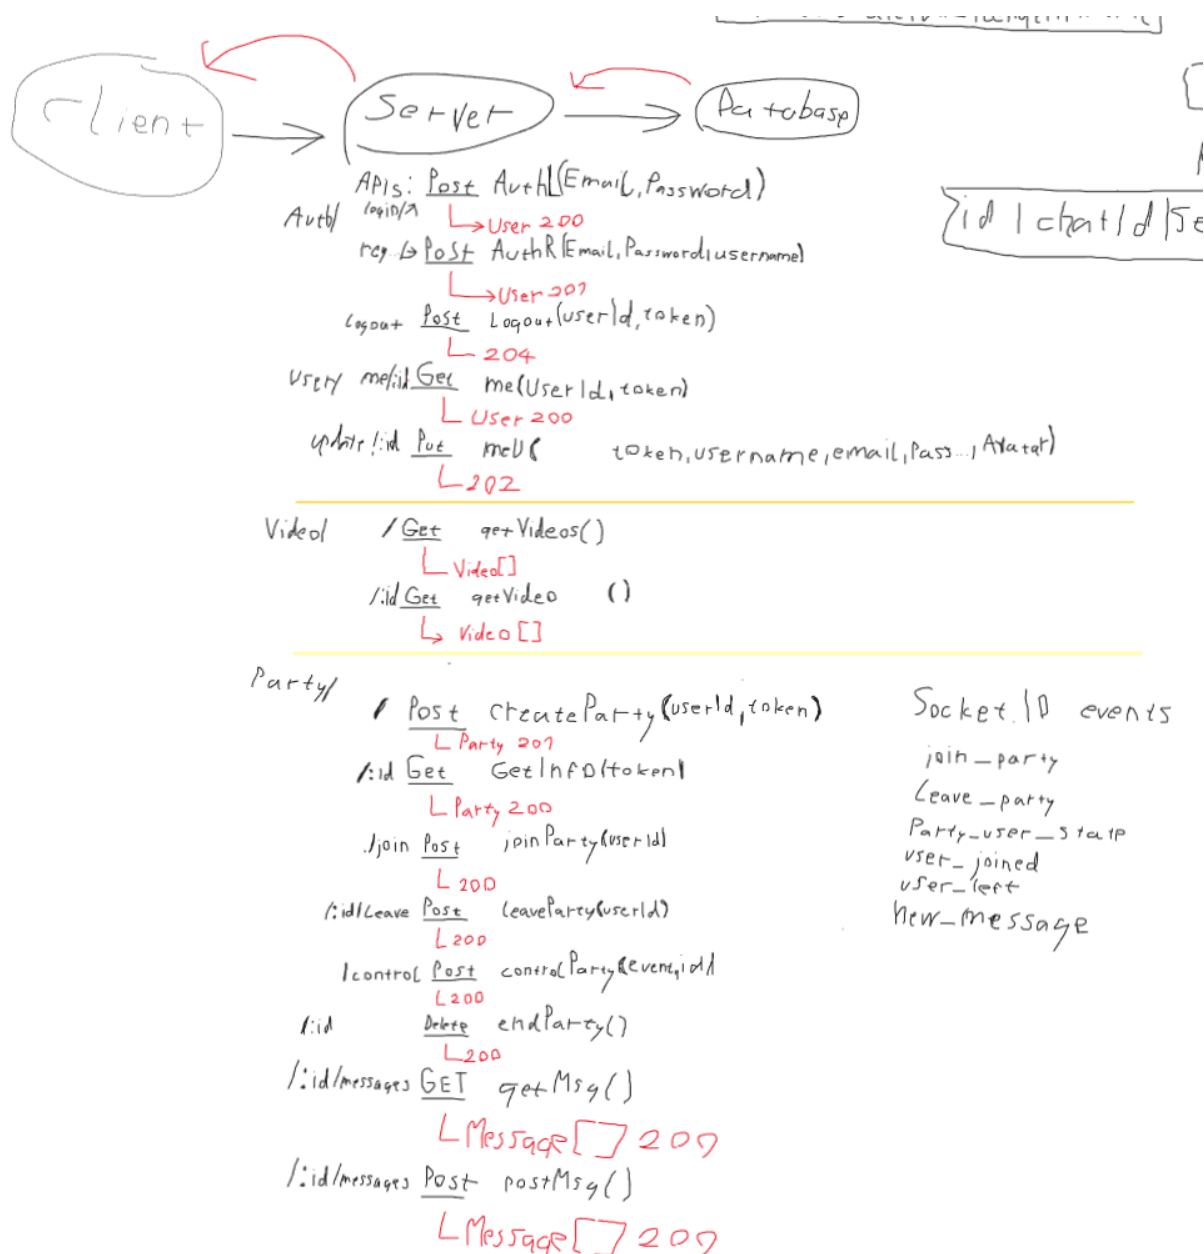 Client
Server
Database
APIs: Post AuthL(Email, Password)
Auth/ login/
User 200
reg Post AuthR(Email, Password, username)
User 201
logout Post Logout(userId, token)
204
User/ me/:id Get me(UserId, token)
User 200
update/:id Put meU( token, username, email, Pass..., Avatar)
202
Video/ / Get getVideos()
Video[]
/:id Get getVideo ()
Video[]
Party/
/ Post createParty(userId, token)
Party 201
/:id Get GetInfo(token)
Party 200
/join Post joinParty(userId)
200
/:id/Leave Post leaveParty(userId)
200
/control Post controlParty(event, id)
200
/:id Delete endParty()
200
/:id/messages GET getMsg()
Message[] 201
/:id/messages Post postMsg()
Message[] 201
id | chatId | Se
Socket.IO events
join_party
Leave_party
Party_user_state
user_joined
user_left
new_message